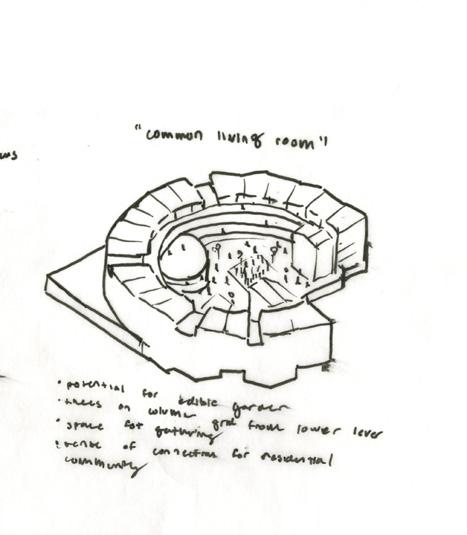 "common living room"
ws
• potential for edible garden
• trees on column grid from lower level
• space for gathering
• sense of connection for residential
community